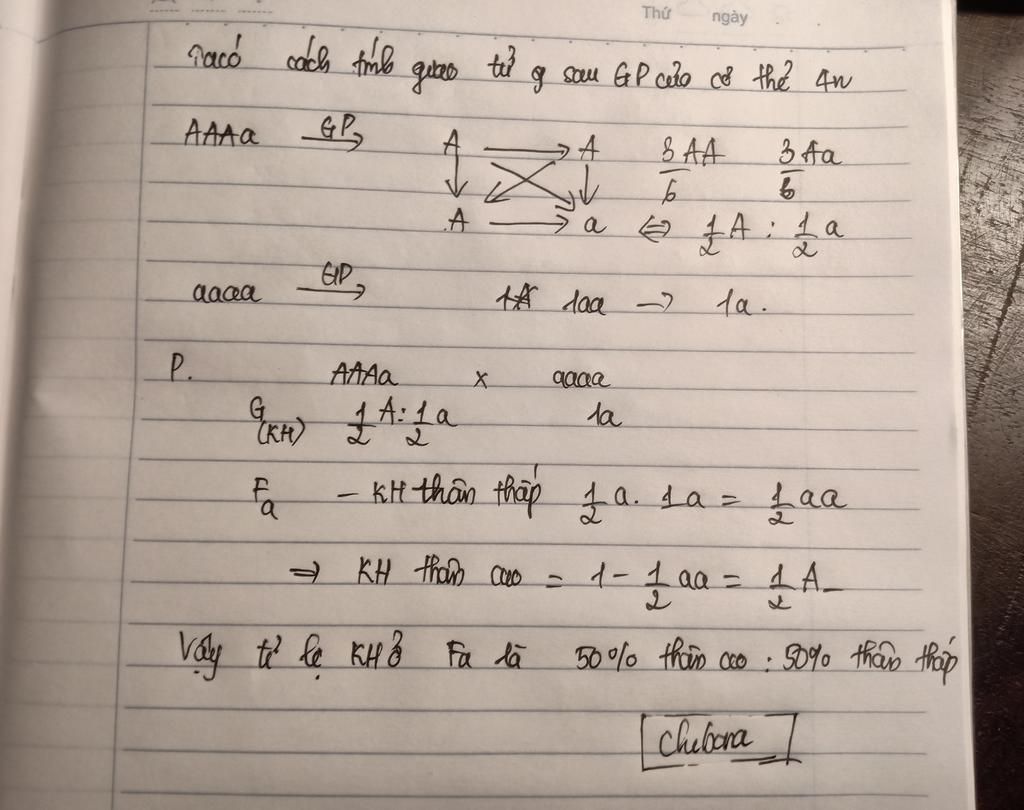 Thứ ngày
Ta có cách tính giao tử g sau GP của cơ thể 4n
AAAa GP→ A → A 3/6 AA 3/6 Aa
A → a ⇔ 1/2 A : 1/2 a
aaaa GP→ 1aa → 1a.
P. AAAa x aaaa
G (KH) 1/2 A : 1/2 a 1a
Fa - KH thân thấp 1/2 a . 1a = 1/2 aa
⇒ KH thân cao = 1 - 1/2 aa = 1/2 A_
Vậy tỉ lệ KH ở Fa là 50% thân cao : 50% thân thấp